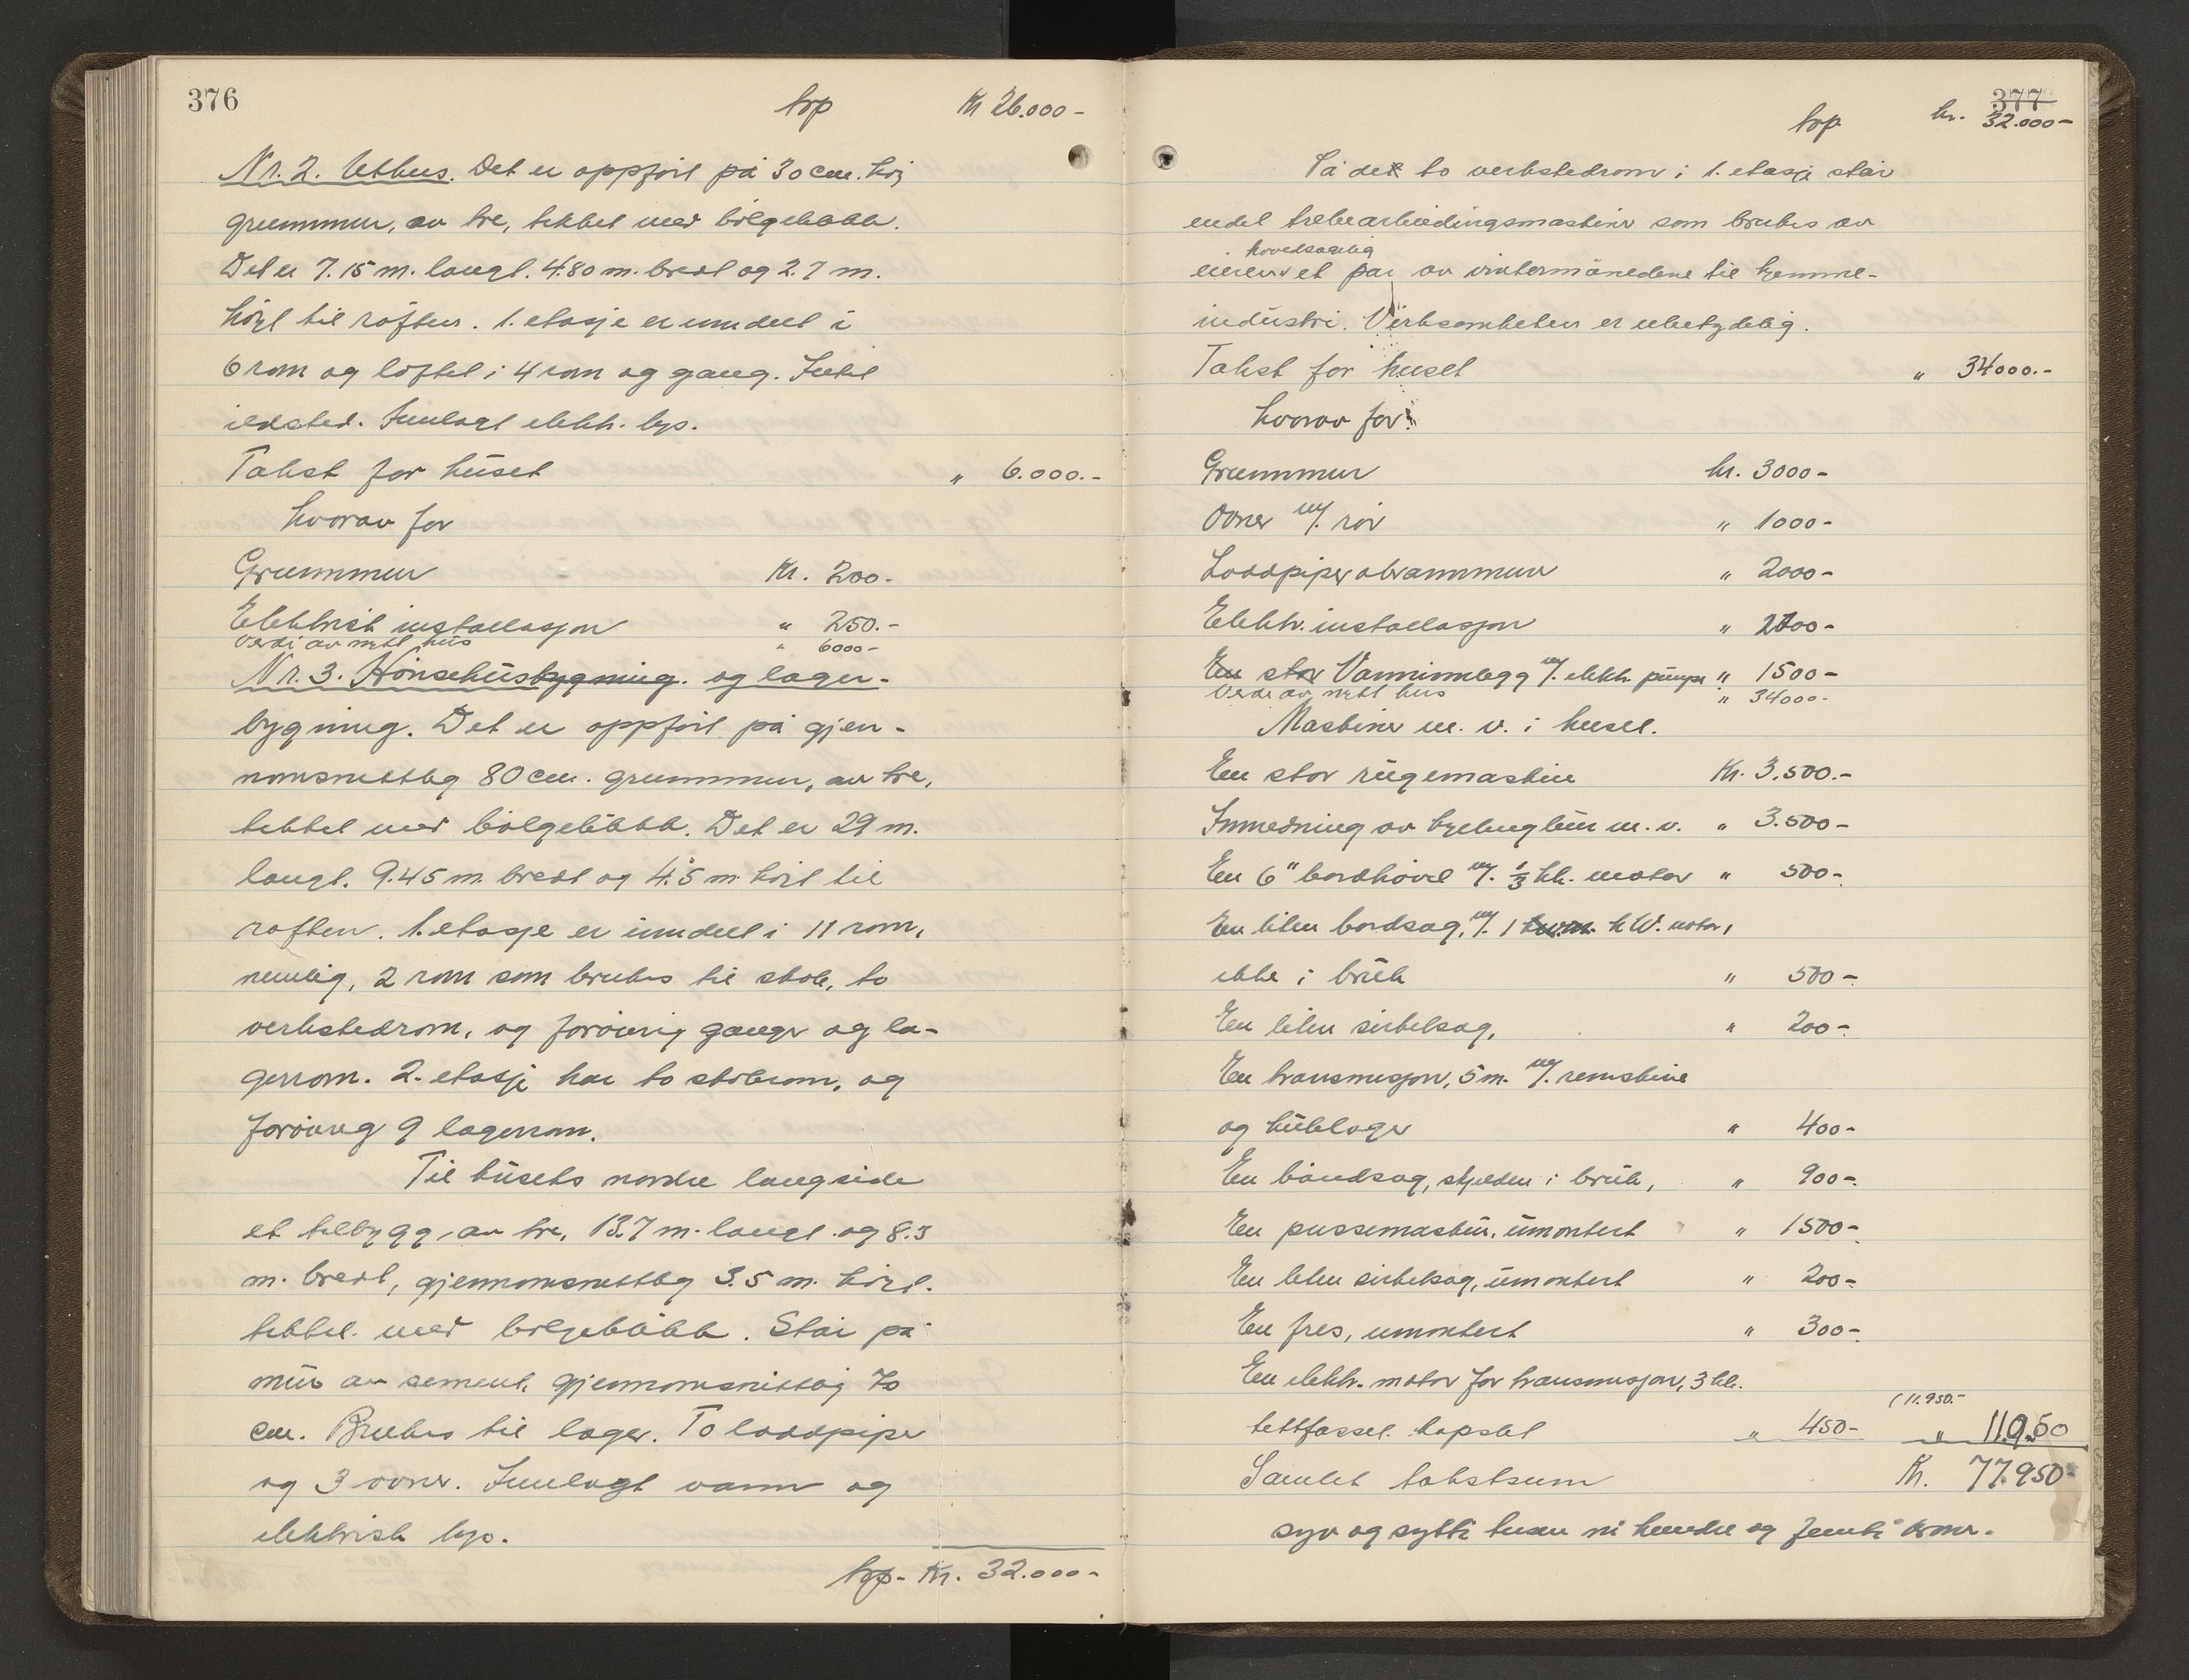 376
trp Kr 26.000-
Nr. 2. Uthus. Det er oppført på 30 cm. høy
grunnmur, av tre, tekket med bølgeblikk.
Det er 7.15 m. langt. 4.80 m. bredt og 2.7 m.
høyt til raften. 1. etasje er inndelt i
6 rom og loftet i 4 rom og gang. Intet
ildsted. Innlagt elektr. lys.
Takst for huset " 6.000.-
hvorav for
Grunnmur Kr. 200.-
Elektrisk installasjon " 250.-
Verdi av nytt hus " 6000-
Nr. 3. Hønsehusbygning. og lager-
bygning. Det er oppført på gjen-
nomsnittlig 80 cm. grunnmur, av tre,
tekket med bølgeblikk. Det er 29 m.
langt. 9.45 m. bredt og 4.5 m. høyt til
raften. 1. etasje er inndelt i 11 rom,
nemlig, 2 rom som brukes til stole, to
verkstedrom, og forøvrig ganger og la-
gerrom. 2. etasje har to stolerom, og
forøvrig 9 lagerrom.
Til husets nordre langside
et tilbygg, av tre, 13.7 m. langt og 8.3
m. bredt, gjennomsnittlig 3.5 m. høyt.
tekket med bølgeblikk. Står på
mur av sement, gjennomsnittlig 70
cm. Brukes til lager. To loddpiper
og 3 ovner. Innlagt vann og
elektrisk lys.
trp- Kr. 32.000-
377
trp kr. 32.000-
På det to verkstedrom i 1. etasje står
endel trebearbeidingsmaskiner som brukes av
hovedsagelig
eieren et par av vintermånedene til hjemme-
industri. Virksomheten er ubetydelig.
Takst for huset " 34000.-
hvorav for:
Grunnmur kr. 3000-
Ovner m/. rør " 1000-
Loddpiper o brannmur " 2000-
Elektr. installasjon " 2700-
En stor Vanninnlegg m/. elektr. pumpe " 1500-
Verdi av nytt hus " 34000-
Maskiner m. v. i huset.
En stor rugemaskin Kr. 3.500.-
Innredning av kyllingbur m. v. " 3.500-
En 6" bordhøvel m/. 1/3 hk. motor " 500-
En liten bordsag, m/. 1 k.W. motor,
ikke i bruk " 500-
En liten sirkelsag, " 200-
En transmisjon, 5 m. m/. remskive
og kulelager " 400-
En båndsag, skjelden i bruk, " 900-
En pussemaskin, umontert " 1500-
En liten sirkelsag, umontert " 200-
En fres, umontert " 300-
En elektr. motor for transmisjon, 3 hk.
( 11.950.-
tettfasset kapslet " 450- " 11950
Samlet takstsum Kr. 77.950-
syv og sytti tusen ni hundre og femti kroner.